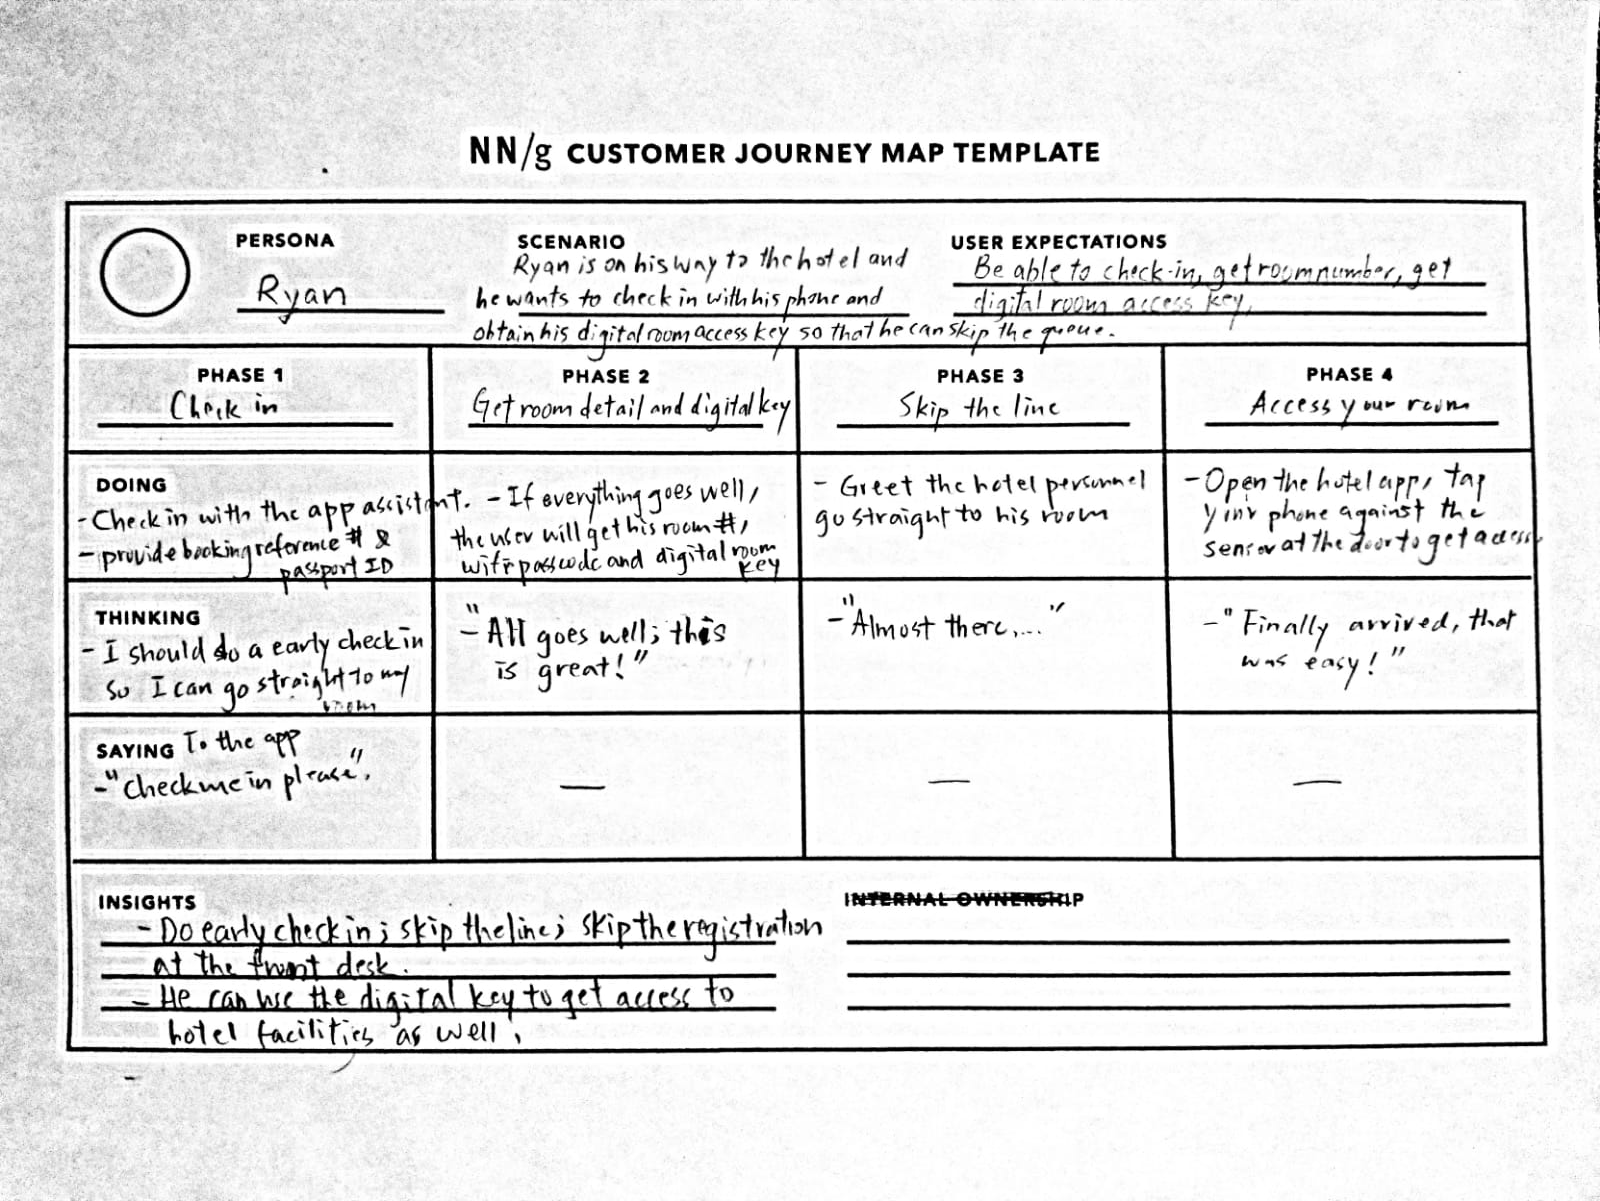 NN/g CUSTOMER JOURNEY MAP TEMPLATE
PERSONA
Ryan
SCENARIO
Ryan is on his way to the hotel and
he wants to check in with his phone and
obtain his digital room access key so that he can skip the queue.
USER EXPECTATIONS
Be able to check-in, get room number, get
digital room access key.
PHASE 1
Check in
PHASE 2
Get room detail and digital key
PHASE 3
Skip the line
PHASE 4
Access your room
DOING
- Check in with the app assistant.
- provide booking reference # &
passport ID
- If everything goes well,
the user will get his room #,
wifi passcode and digital room
key
- Greet the hotel personnel
go straight to his room
- Open the hotel app, tap
your phone against the
sensor at the door to get access
THINKING
- I should do a early check in
so I can go straight to my
room
"
- All goes well; this
is great!"
- "Almost there,..."
- "Finally arrived, that
was easy!"
SAYING To the app
- "Check me in please".
—
—
—
INSIGHTS
- Do early check in; skip the line; skip the registration
at the front desk.
- He can use the digital key to get access to
hotel facilities as well.
INTERNAL OWNERSHIP